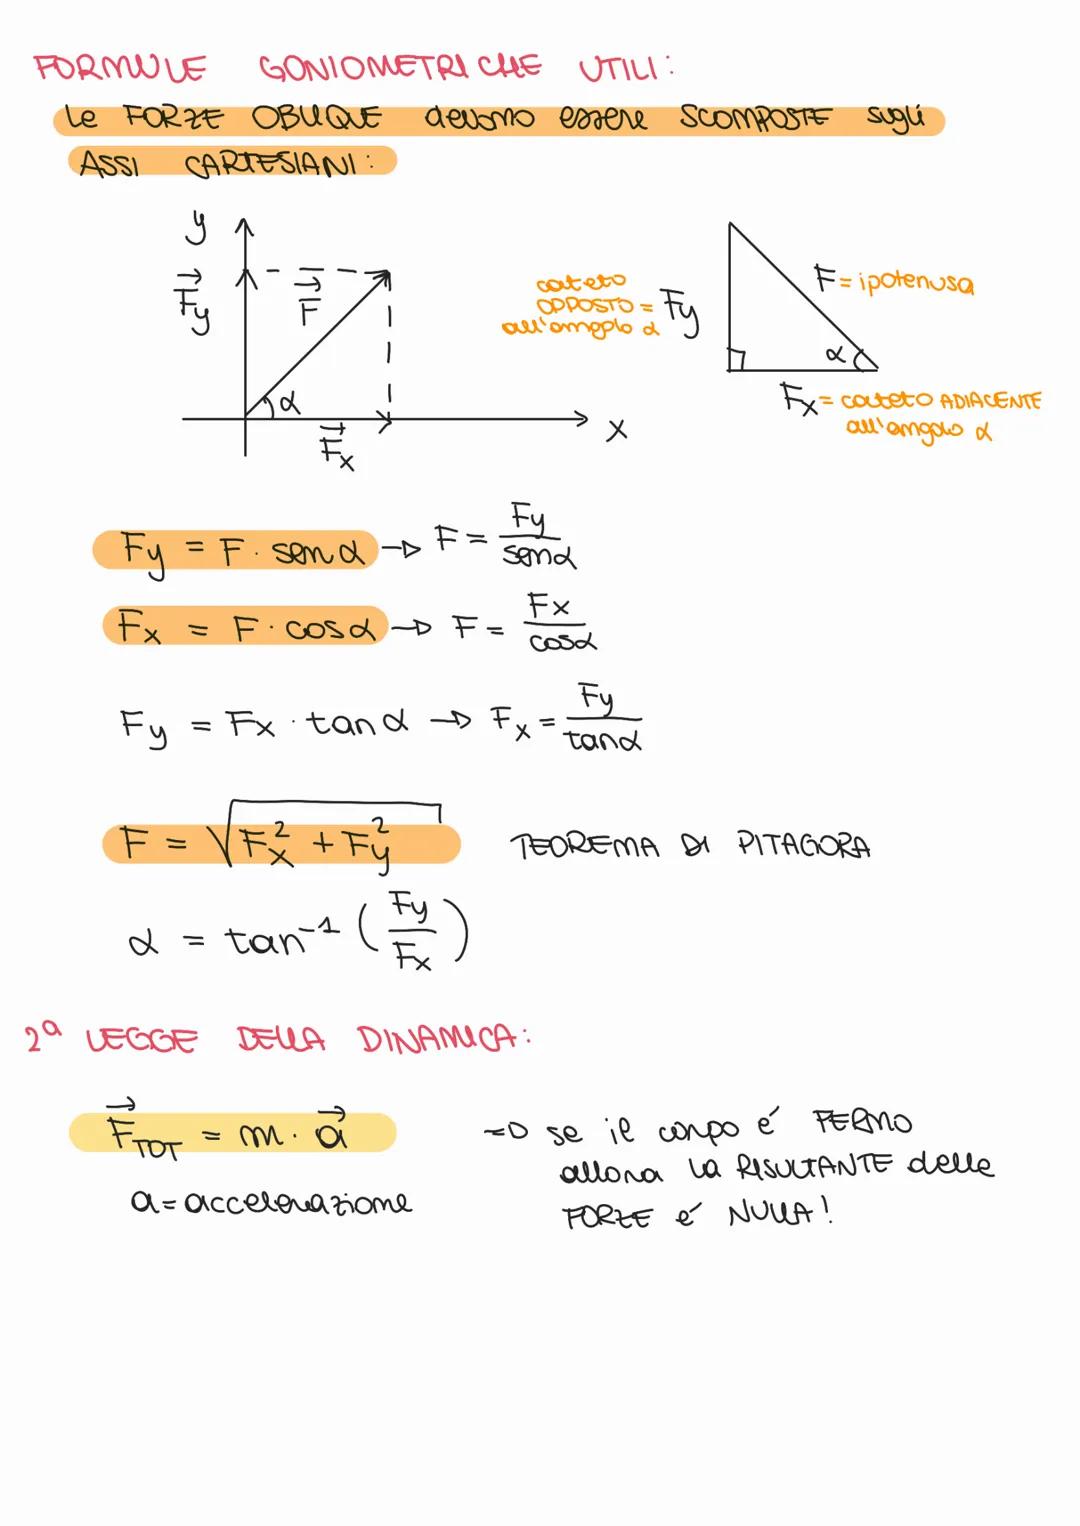 FORMULE GONIOMETRICHE UTILI:
Le FORZE OBLIQUE devono essere SCOMPOSTE sugli
ASSI CARTESIANI:
y
F⃗y
F⃗
α
F⃗x
x
cateto
OPPOSTO = Fy
all'angolo α
F = ipotenusa
α
Fx = cateto ADIACENTE
all'angolo α
Fy = F · sen α → F = Fy / sen α
Fx = F · cos α → F = Fx / cos α
Fy = Fx · tan α → Fx = Fy / tan α
F = √(Fx² + Fy²) TEOREMA DI PITAGORA
α = tan⁻¹ (Fy / Fx)
2ª LEGGE DELLA DINAMICA:
F⃗TOT = m · a⃗ → se il corpo é FERMO
allora la RISULTANTE delle
a = accelerazione
FORZE é NULLA!